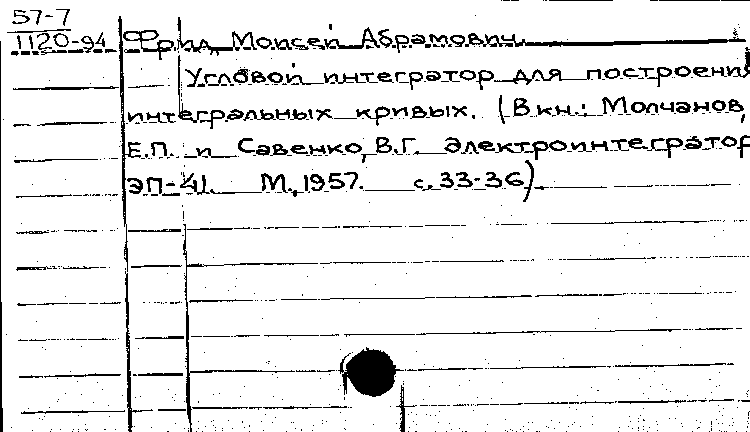 57-7
1120-94 Фрид, Моисей Абрамович.
Угловой интегратор для построения
интегральных кривых. (В кн.: Молчанов,
Е.П. и Савенко, В.Г. Электроинтегратор
ЭП-41. М., 1957. с. 33-36).